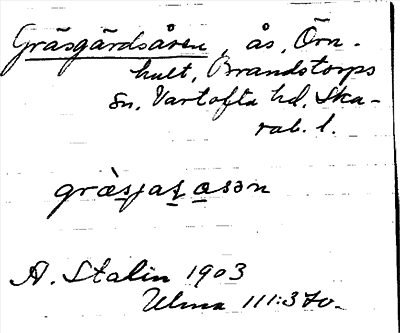 Gräsgärdsåsen, ås, Örn-
hult, Brandstorps
sn. Vartofta hd, Ska-
rab. l.
gràsjasąsən
A. Stalin 1903
Ulma 111:370.